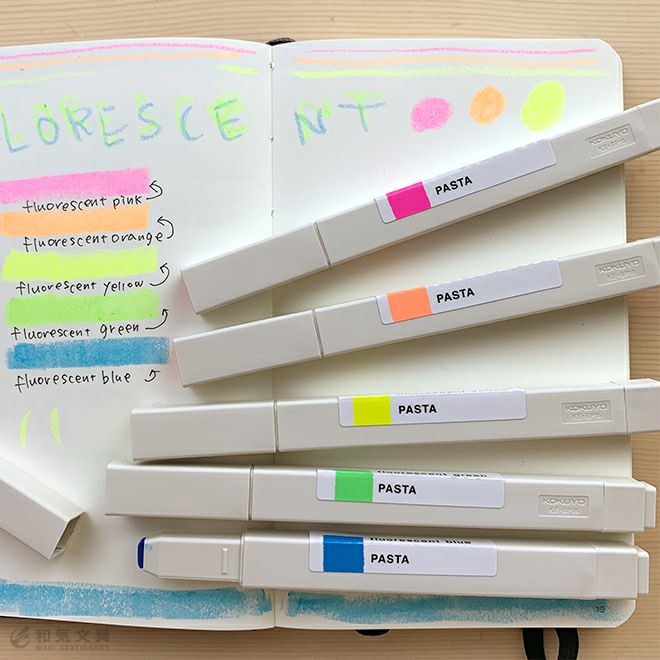 LORESCENT
fluorescent pink
fluorescent orange
fluorescent yellow
fluorescent green
fluorescent blue
PASTA
KOKUYO
KE-SP15
PASTA
KOKUYO
KE-SP15
PASTA
KOKUYO
KE-SP15
fluorescent green
PASTA
KOKUYO
KE-SP15
fluorescent blue
PASTA
15
和気文具
WAKI STATIONERY